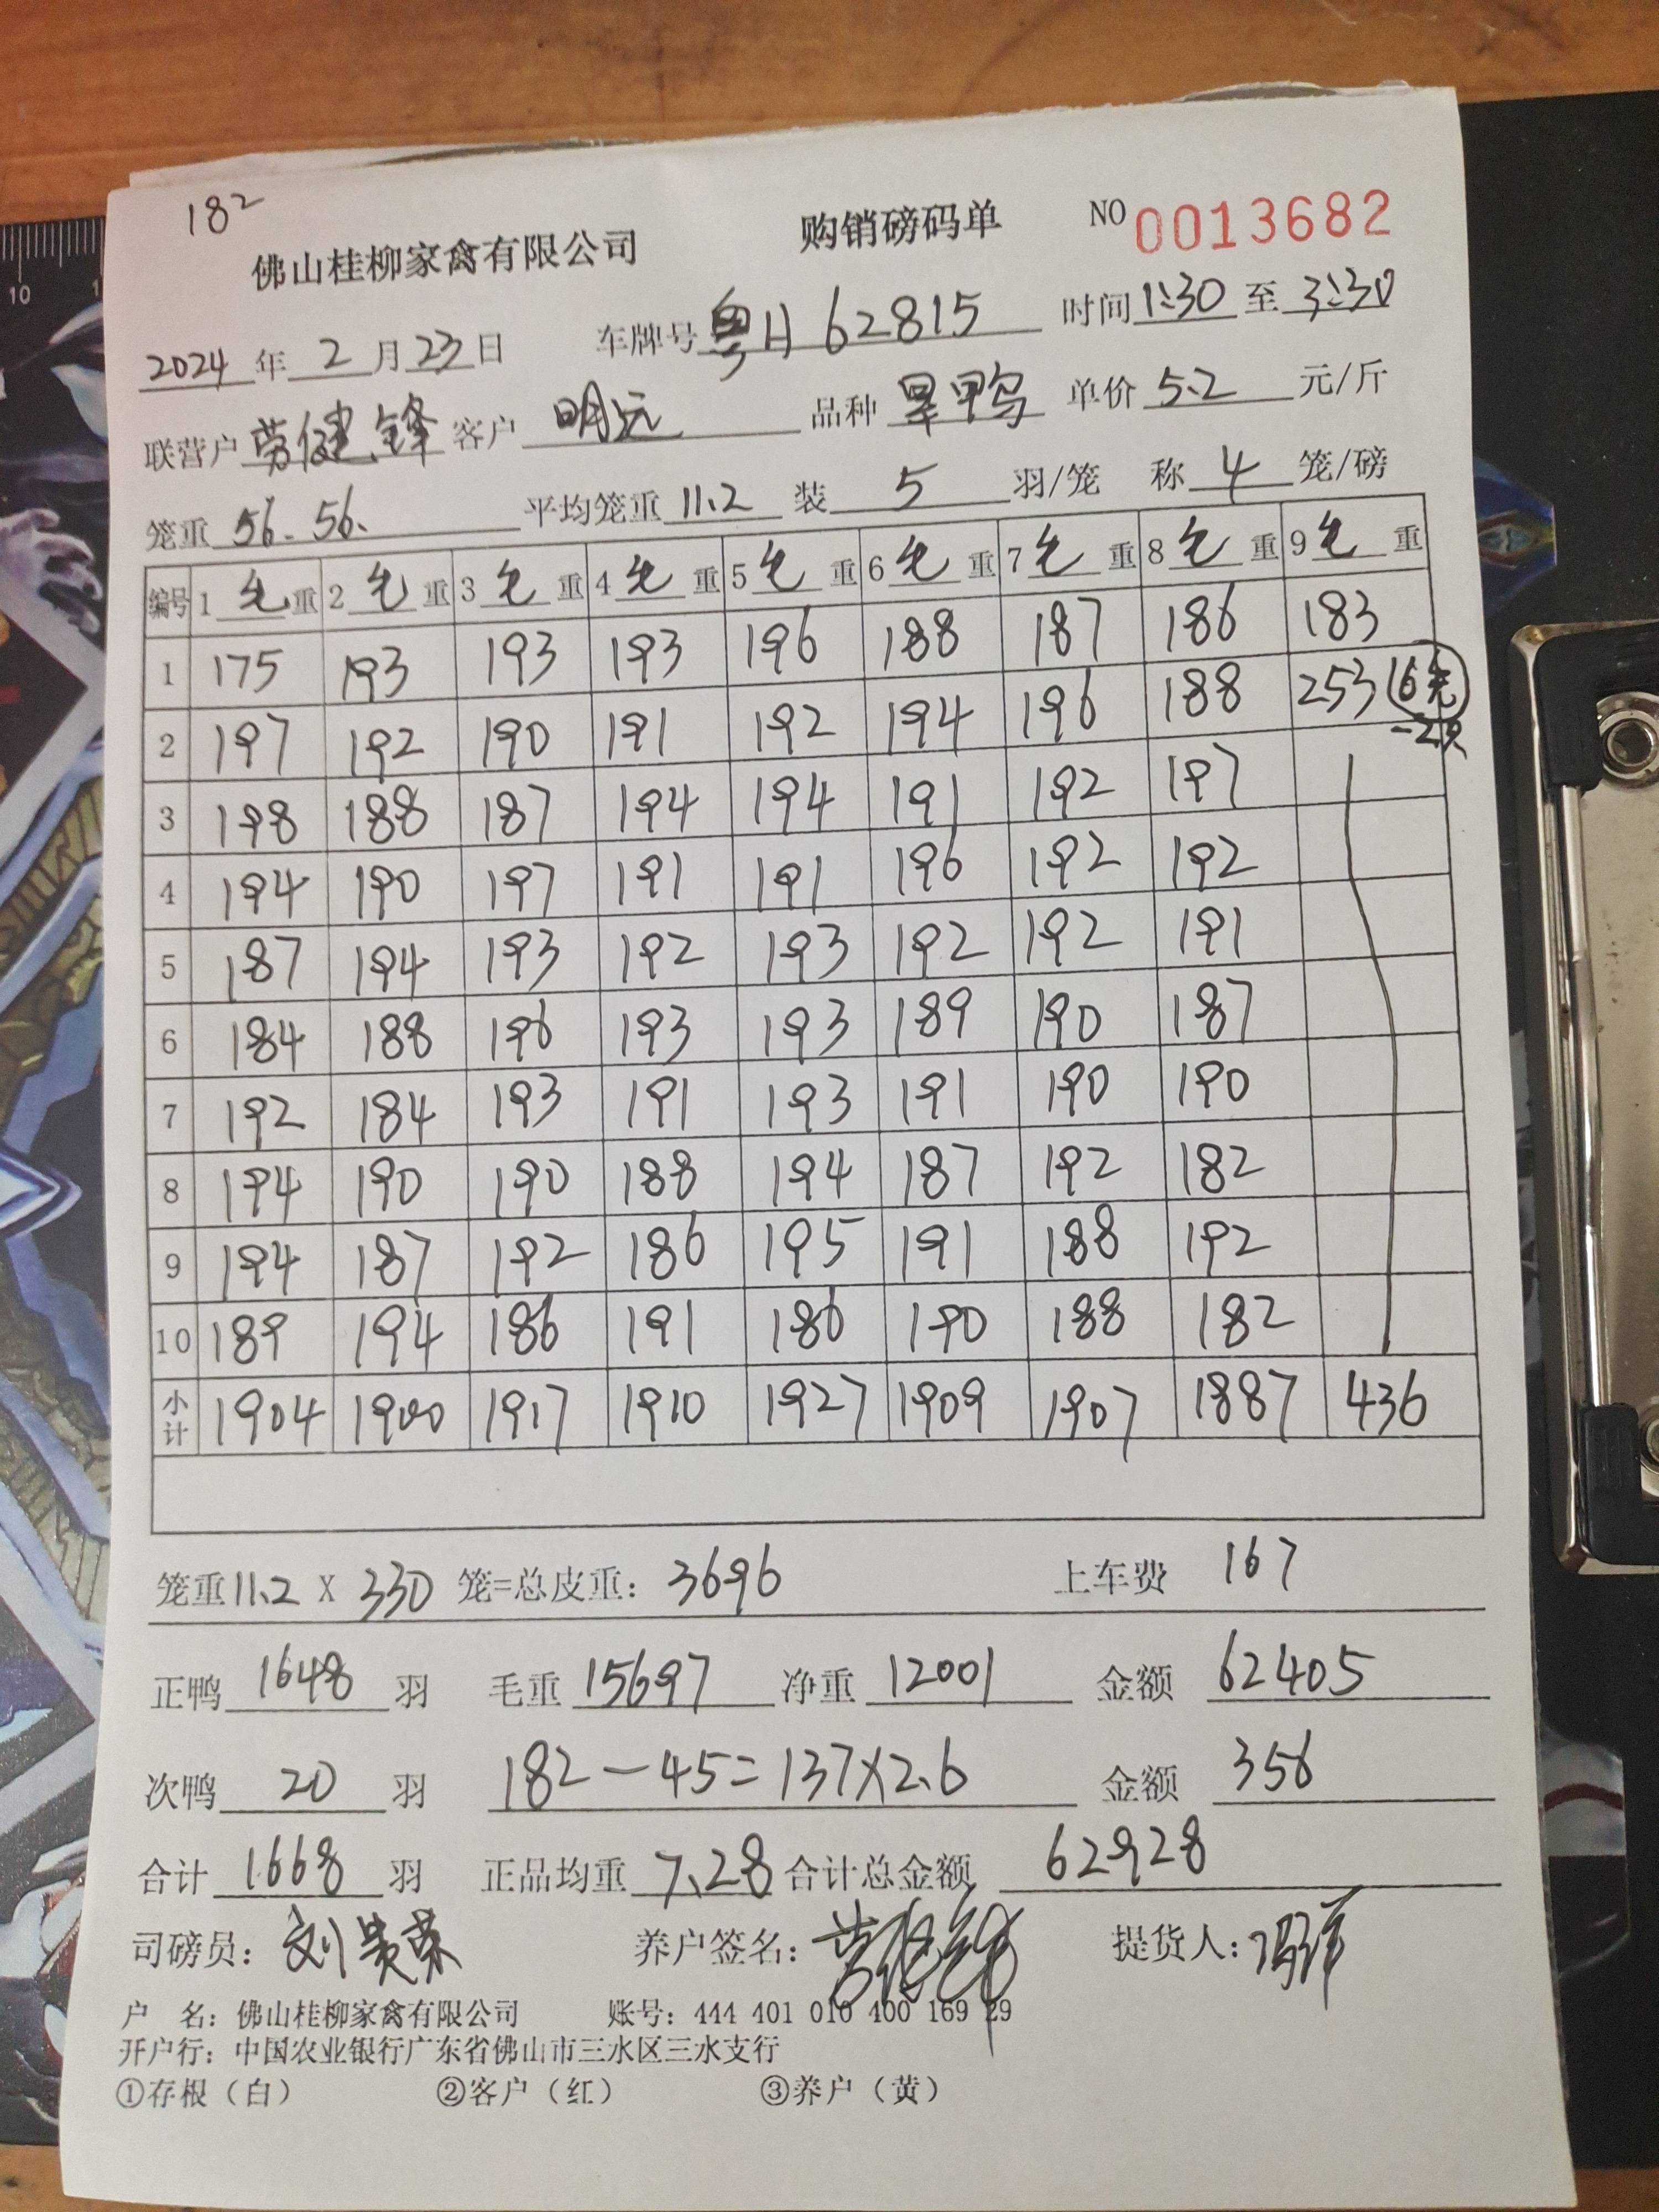 182
佛山桂柳家禽有限公司 购销磅码单 NO 0013682
2024年2月23日 车牌号粤H 62815 时间1:30至3:30
联营户劳健锋 客户 明远 品种 旱鸭 单价5.2元/斤
笼重 56. 56. 平均笼重11.2 装 5 羽/笼 称 4 笼/磅
编号 1毛重 2毛重 3毛重 4毛重 5毛重 6毛重 7毛重 8毛重 9毛重
1 175 193 193 193 196 188 187 186 183
2 197 192 190 191 192 194 196 188 253
3 198 188 187 194 194 191 192 197
4 194 190 197 191 191 196 192 192
5 187 194 193 192 193 192 192 191
6 184 188 196 193 193 189 190 187
7 192 184 193 191 193 191 190 190
8 194 190 190 188 194 187 192 182
9 194 187 192 186 195 191 188 192
10 189 194 186 191 186 190 188 182
小计 1904 1900 1917 1910 1927 1909 1907 1887 436
笼重11.2 X 330 笼=总皮重：3696 上车费 167
正鸭 1648 羽 毛重 15697 净重 12001 金额 62405
次鸭 20 羽 182-45=137X2.6 金额 356
合计 1668 羽 正品均重 7.28 合计总金额 62928
司磅员：刘 养户签名： 提货人：
户 名：佛山桂柳家禽有限公司 账号：444 401 010 400 169 29
开户行：中国农业银行广东省佛山市三水区三水支行
①存根（白） ②客户（红） ③养户（黄）